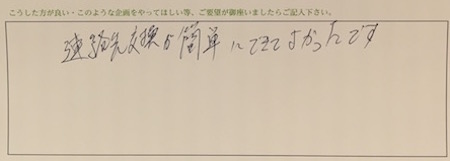 こうした方が良い・このような企画をやってほしい等、ご要望が御座いましたらご記入下さい。
連絡先交換が簡単にできてよかったです